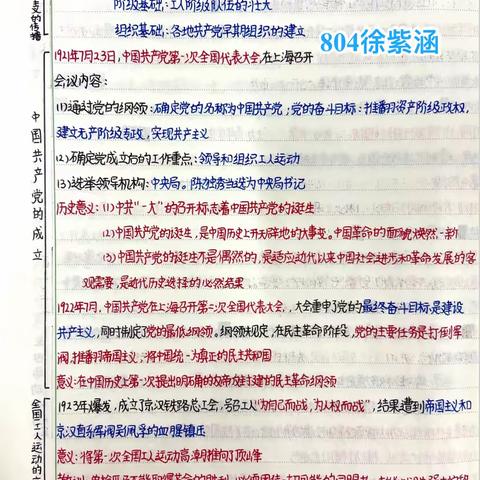 义的传播
阶级基础:工人阶级队伍的壮大
组织基础:各地共产党早期组织的建立
804徐紫涵
中国共产党的成立
1921年7月23日,中国共产党第一次全国代表大会在上海召开
会议内容:
(1)通过党的纲领:确定党的名称为中国共产党;党的奋斗目标:推翻资产阶级政权,
建立无产阶级专政,实现共产主义
(2)确定党成立后的工作重点:领导和组织工人运动
(3)选举领导机构:中央局。陈独秀当选为中央局书记
历史意义:(1)中共"一大"的召开标志着中国共产党的诞生
(2)中国共产党的诞生,是中国历史上开天辟地的大事变。中国革命的面貌焕然一新
(3)中国共产党的诞生不是偶然的,是适应近代以来中国社会进步和革命发展的客
观需要,是近代历史选择的必然结果
1922年7月,中国共产党在上海召开第二次全国代表大会,大会重申了党的最终奋斗目标是建设
共产主义,同时制定了党的最低纲领。纲领规定,在民主革命阶段,党的主要任务是打倒军
阀,推翻帝国主义,将中国统一为真正的民主共和国
意义:在中国历史上第一次提出明确的反帝反封建的民主革命纲领
全国工人运动的
1923年爆发,成立了京汉铁路总工会,号召工人"为自己而战,为人权而战",结果遭到帝国主义和
京汉直系军阀吴佩孚的血腥镇压
意义:将第一次全国工人运动高潮推向了顶峰